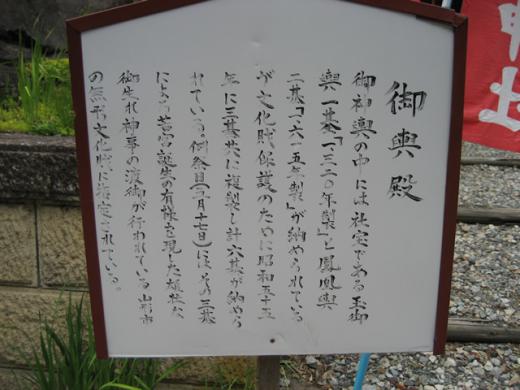 御輿殿
御神輿の中には社宝である玉御
輿一基「一三二〇年製」と鳳凰輿
二基「一六一五年製」が納められている
が文化財保護のために昭和五十五
年に三基共に複製し計六基が納めら
れている。例祭日(七月十七日)には、その三基
による若宮誕生の有様を現した雄壮な
御生れ神事の渡御が行われている 山形市
の無形文化財に指定されている。